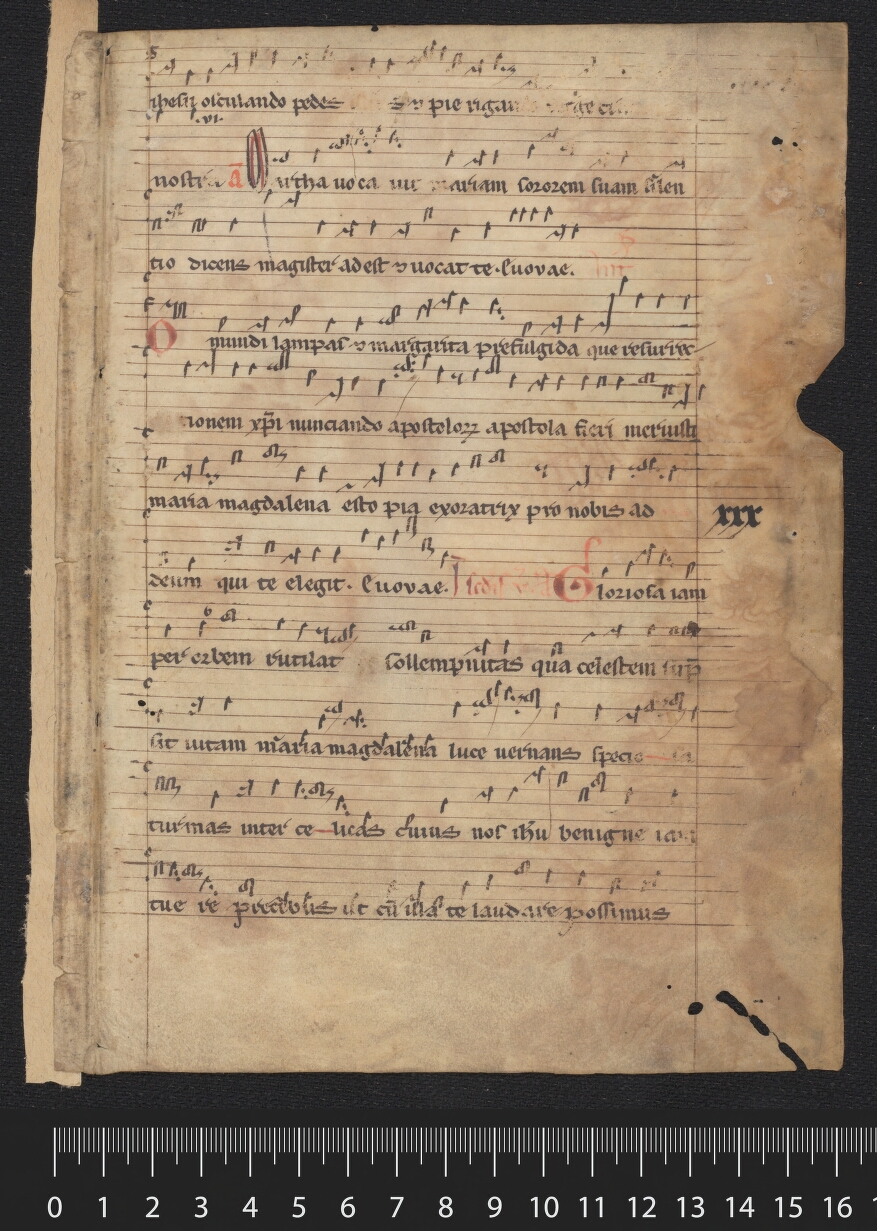 ihesu osculando pedes pie
nostra a Martha vocavit mariam sororem suam silen
tio dicens magister adest & vocat te. Euovae.
O mundi lampas & margarita prefulgida que resurrec
ionem xpi nunciando apostoloꝝ apostola fieri meruisti
maria magdalena esto pia exoratrix pro nobis ad
xxx
deum qui te elegit. Euovae. Gloriosa iam
per orbem rutilat sollempnitas qua celestem
sit vitam maria magdalena luce vernans
turmas inter celicas cuius nos ihu benigne
tue precibus te laudare possimus
0 1 2 3 4 5 6 7 8 9 10 11 12 13 14 15 16